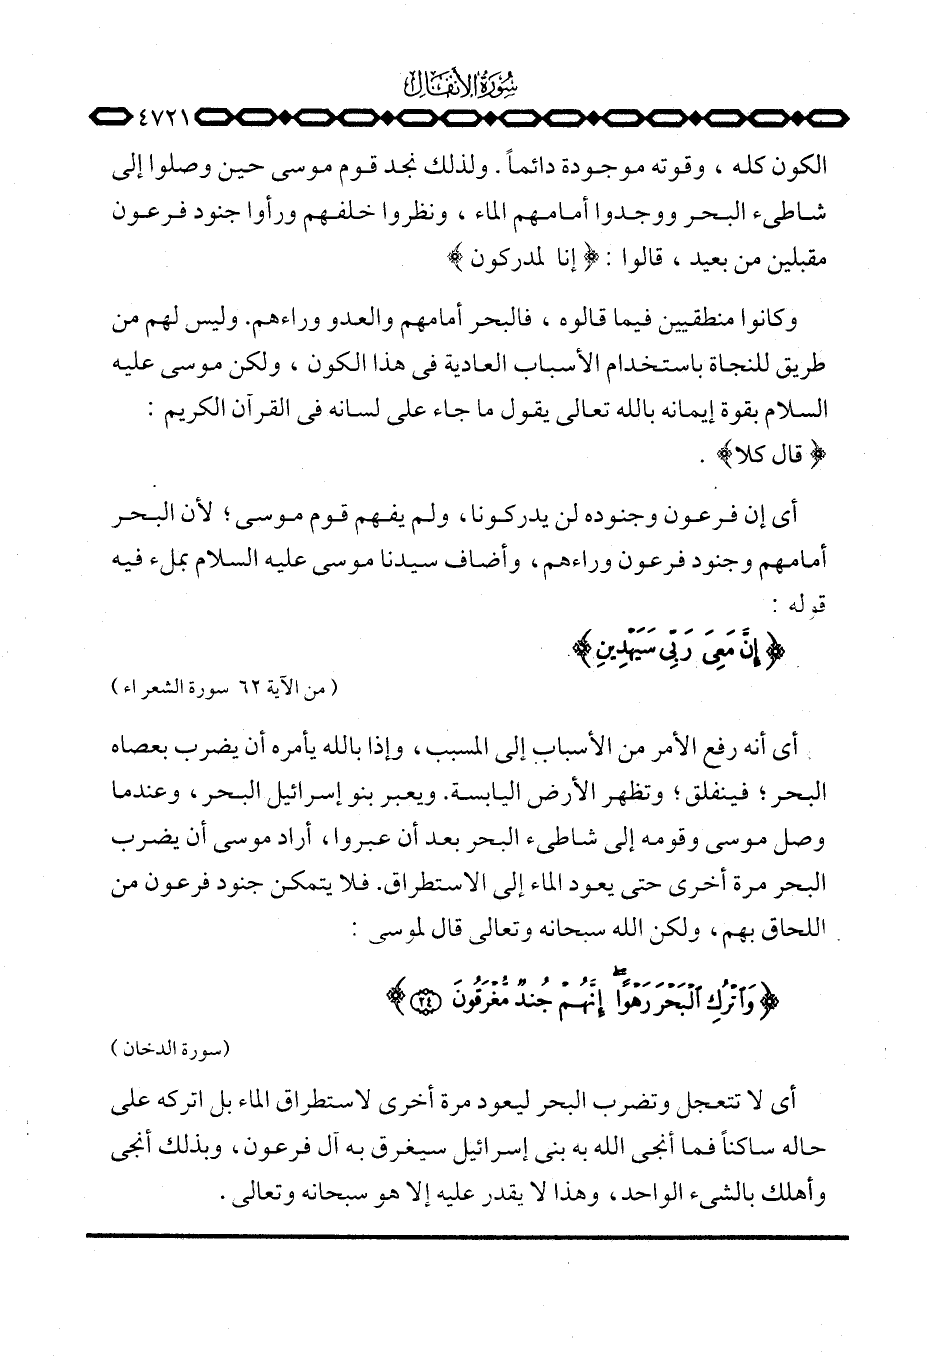 سورة الأنفال
٤٧٢١
الكون كله ، وقوته موجودة دائماً . ولذلك نجد قوم موسى حين وصلوا إلى
شاطىء البحر ووجدوا أمامهم الماء ، ونظروا خلفهم ورأوا جنود فرعون
مقبلين من بعيد ، قالوا : ﴿ إنا لمدركون ﴾
وكانوا منطقيين فيما قالوه ، فالبحر أمامهم والعدو وراءهم. وليس لهم من
طريق للنجاة باستخدام الأسباب العادية فى هذا الكون ، ولكن موسى عليه
السلام بقوة إيمانه بالله تعالى يقول ما جاء على لسانه فى القرآن الكريم :
﴿ قال كلا﴾ .
أى إن فرعون وجنوده لن يدركونا، ولم يفهم قوم موسى؛ لأن البحر
أمامهم وجنود فرعون وراءهم، وأضاف سيدنا موسى عليه السلام بملء فيه
قوله :
﴿ إِنَّ مَعِىَ رَبِّى سَيَهْدِينِ ﴾
( من الآية ٦٢ سورة الشعراء )
أى أنه رفع الأمر من الأسباب إلى المسبب، وإذا بالله يأمره أن يضرب بعصاه
البحر؛ فينفلق؛ وتظهر الأرض اليابسة. ويعبر بنو إسرائيل البحر، وعندما
وصل موسى وقومه إلى شاطىء البحر بعد أن عبروا، أراد موسى أن يضرب
البحر مرة أخرى حتى يعود الماء إلى الاستطراق. فلا يتمكن جنود فرعون من
اللحاق بهم، ولكن الله سبحانه وتعالى قال لموسى :
﴿ وَاتْرُكِ الْبَحْرَ رَهْوًا ۖ إِنَّهُمْ جُندٌ مُّغْرَقُونَ ﴿٢٤﴾ ﴾
(سورة الدخان )
أى لا تتعجل وتضرب البحر ليعود مرة أخرى لاستطراق الماء بل اتركه على
حاله ساكناً فما أنجى الله به بنى إسرائيل سيغرق به آل فرعون، وبذلك أنجى
وأهلك بالشىء الواحد، وهذا لا يقدر عليه إلا هو سبحانه وتعالى .